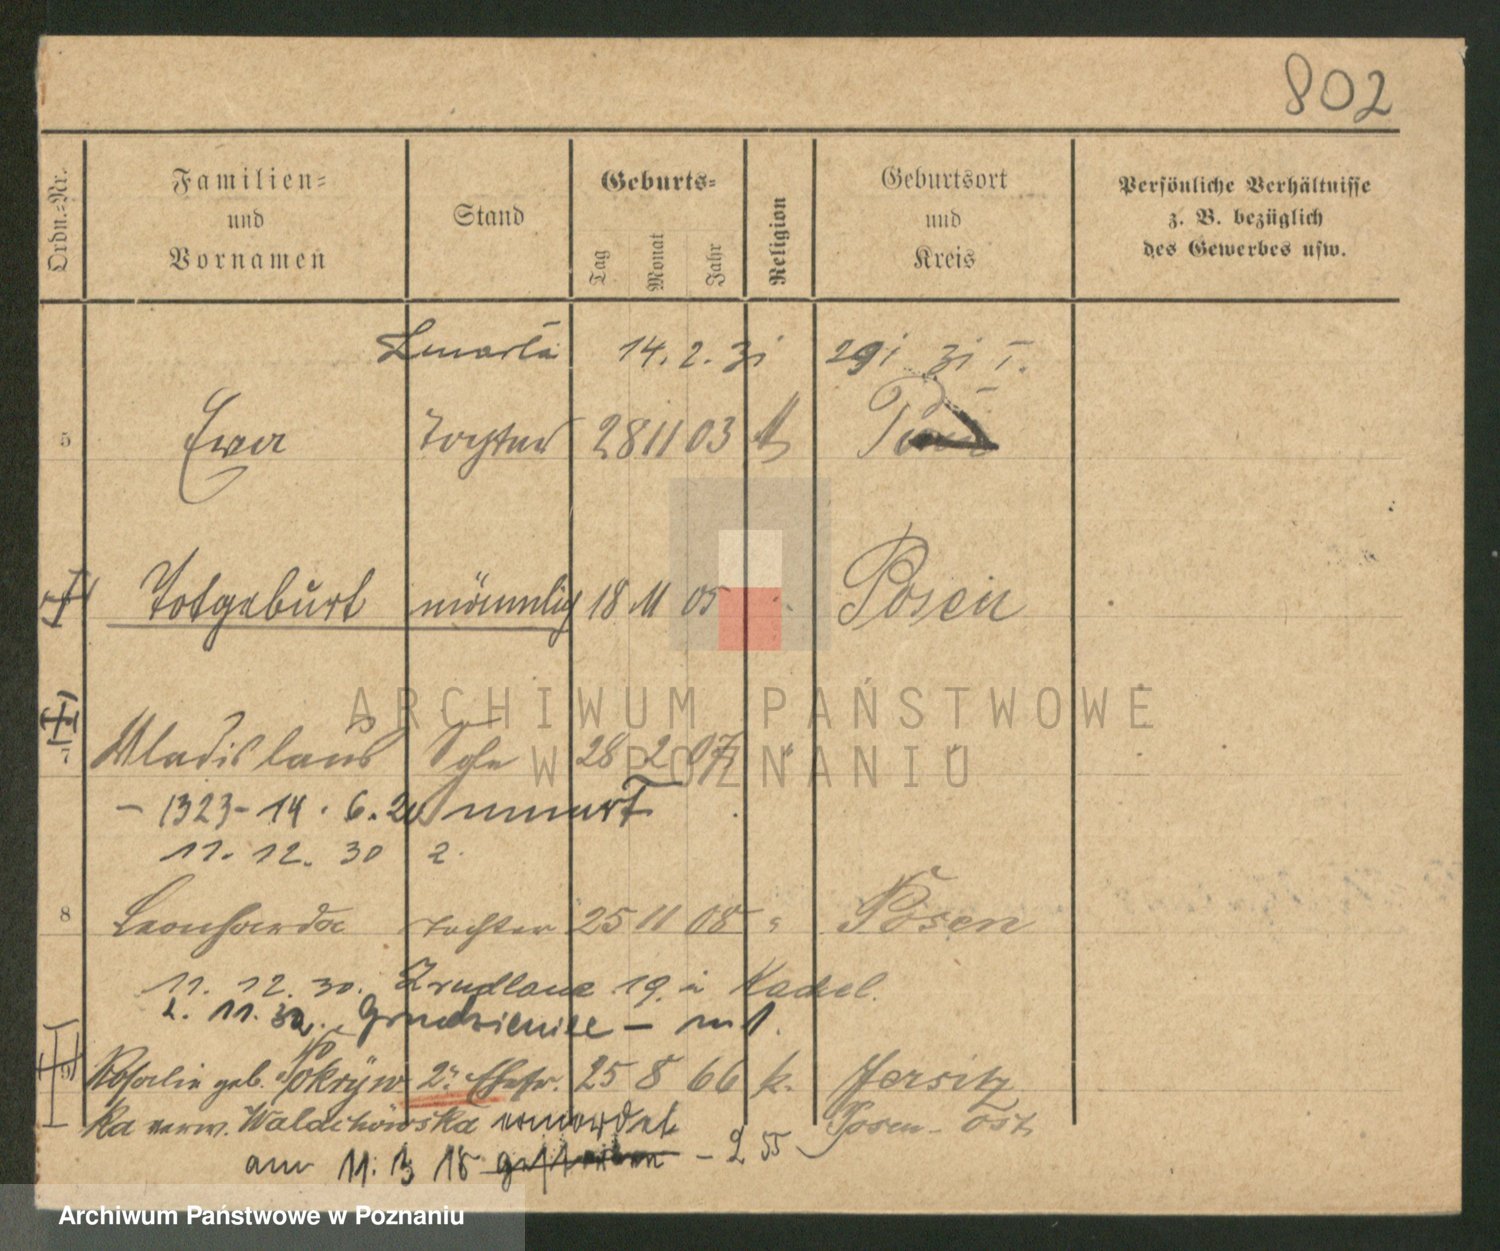 802
Ordn.-Nr.
Familien-
und
Vornamen
Stand
Geburts-
Tag
Monat
Jahr
Religion
Geburtsort
und
Kreis
Persönliche Verhältnisse
z. B. bezüglich
des Gewerbes usw.
14. 2. 31
5 Ewa Tochter 28 11 03
Totgeburt männlich 18 11 05 Posen
ARCHIWUM PAŃSTWOWE
W POZNANIU
7 Wladislaus Sohn 28 2 07 "
- 1323 - 14. 6. 20
11. 12. 30 2.
8 Leonharda Tochter 25 11 08 " Posen
11. 12. 30. 19.
2. 11. 32.
9 Rosalie geb. Pokryw 2. Ehefr. 25 8 66 k. Jersitz
ka verw. ermordet Posen-Ost
am 11. 3 18 gestorben - 2 55
Archiwum Państwowe w Poznaniu